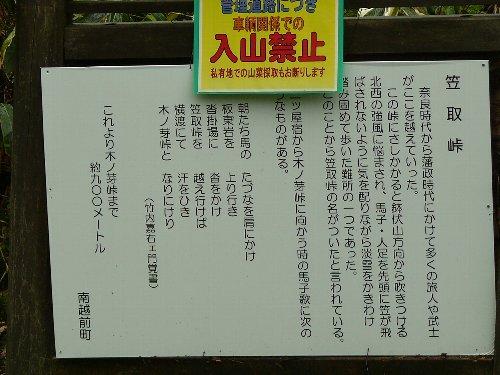 管理道路につき
車輌関係での
入山禁止
私有地での山菜採取もお断りします
笠取峠
奈良時代から藩政時代にかけて多くの旅人や武士
がここを越えていった。
この峠にさしかかると鉢伏山方向から吹きつける
北西の強風に悩まされ、馬子・人足を先頭に笠が飛
ばされないように気を配りながら淡雪をかきわけ
踏み固めて歩いた難所の一つであった。
このことから笠取峠の名がついたと言われている。
ツ屋宿から木ノ芽峠に向かう時の馬子歌に次の
なものがある。
朝たち馬の たづなを肩にかけ
板東岩を 上り行き
沓掛場に 沓をかけ
笠取峠を 越え行けば
横渡にて 汗をひき
木ノ芽峠と なりにけり
(竹内嘉右ェ門覚書)
これより木ノ芽峠まで
約九〇〇メートル
南越前町